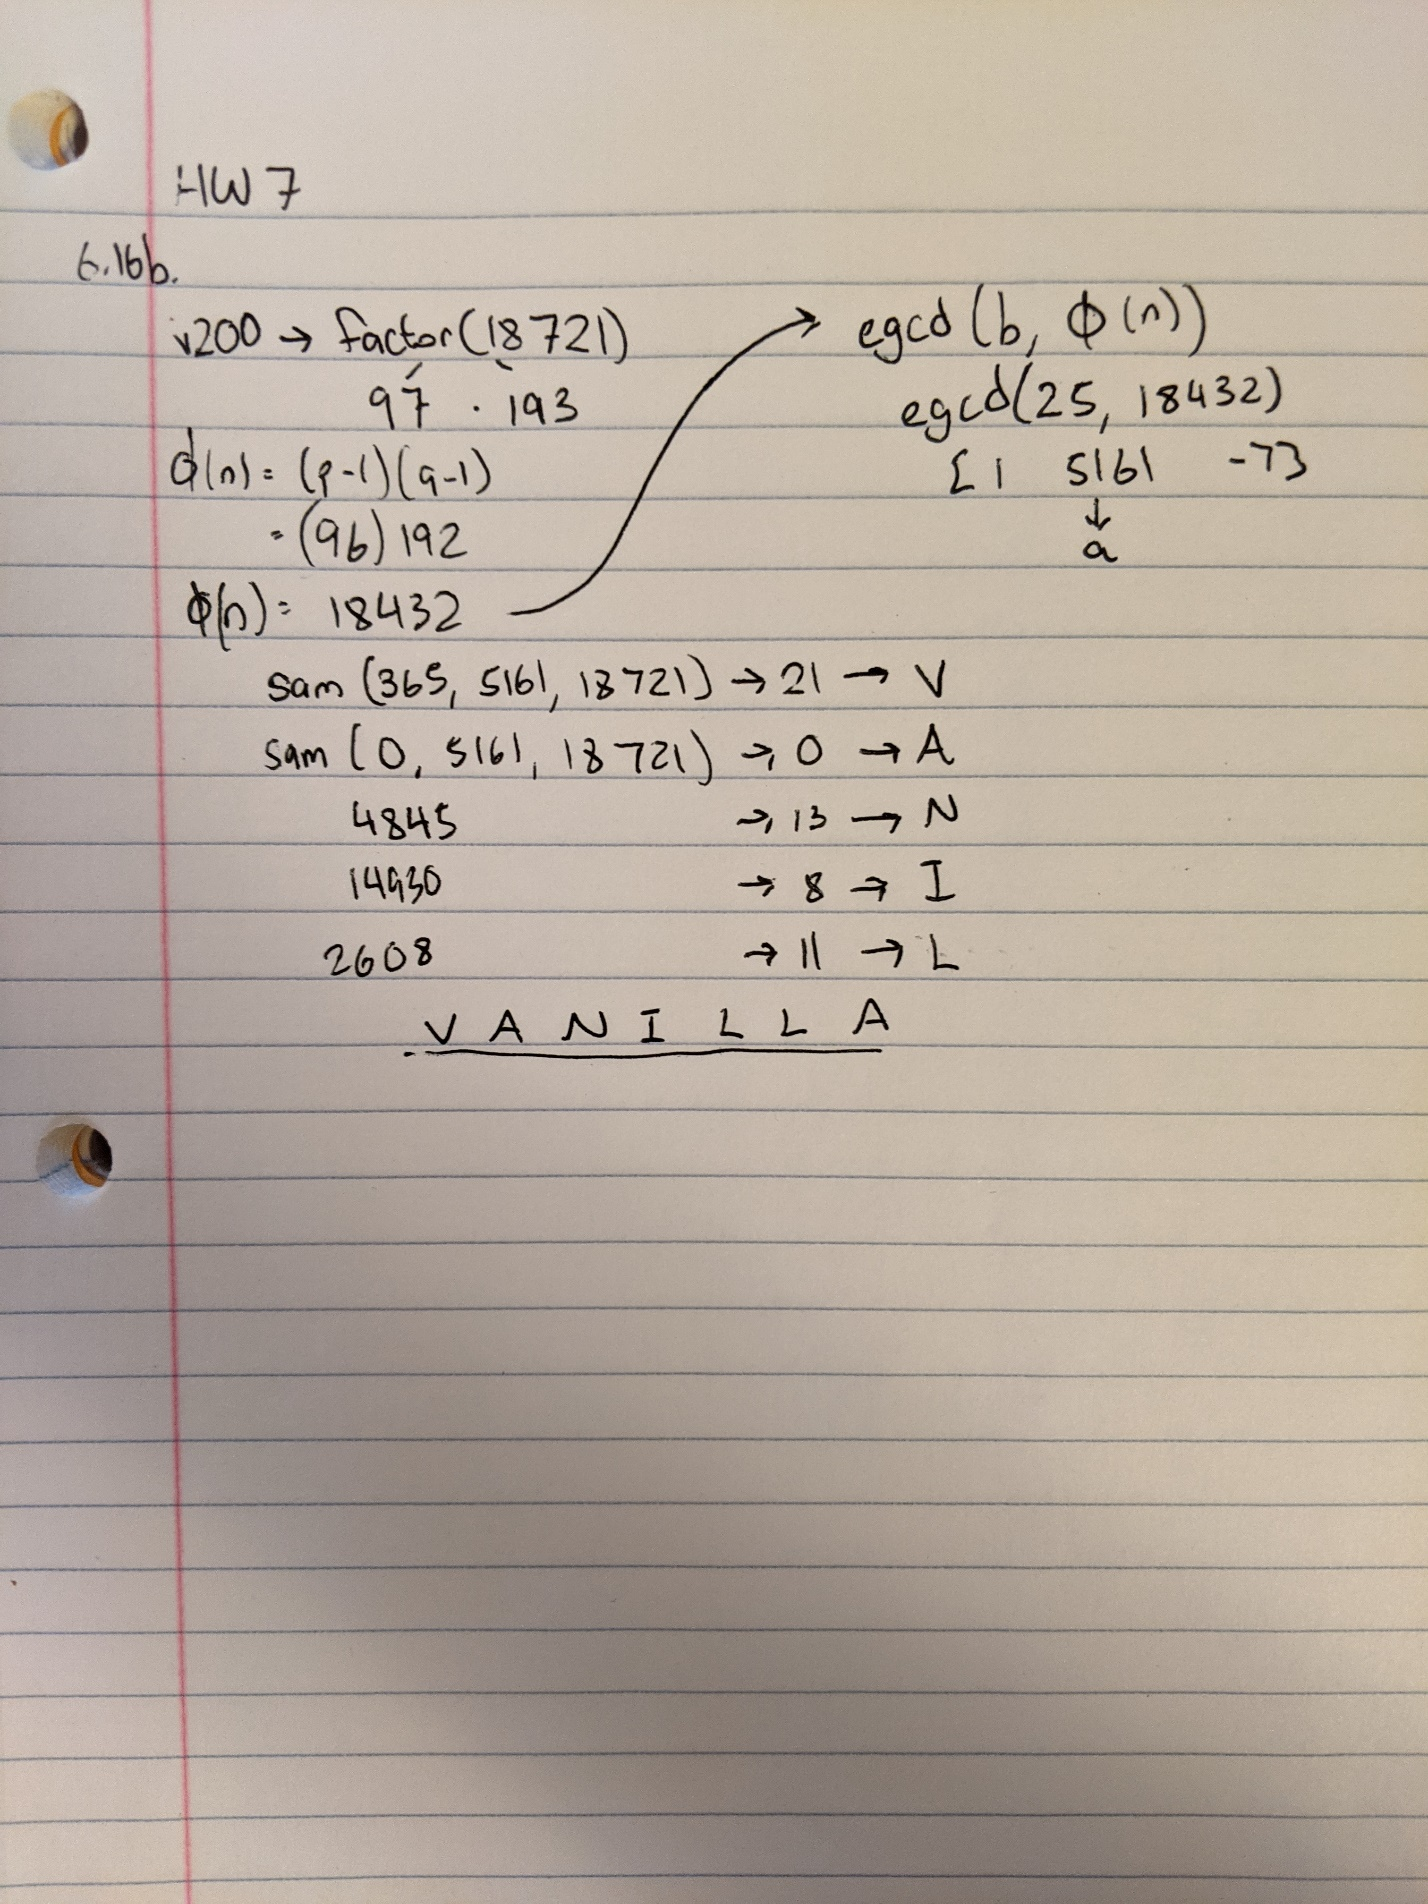 HW 7
6.16b.
v200 → factor(18721)
97 · 193
ϕ(n) = (p-1)(q-1)
= (96) 192
ϕ(n) = 18432
egcd (b, ϕ(n))
egcd(25, 18432)
[ 1 5161 -73
↓
a
sam (365, 5161, 18721) → 21 → V
sam (0, 5161, 18721) → 0 → A
4845 → 13 → N
14930 → 8 → I
2608 → 11 → L
V A N I L L A